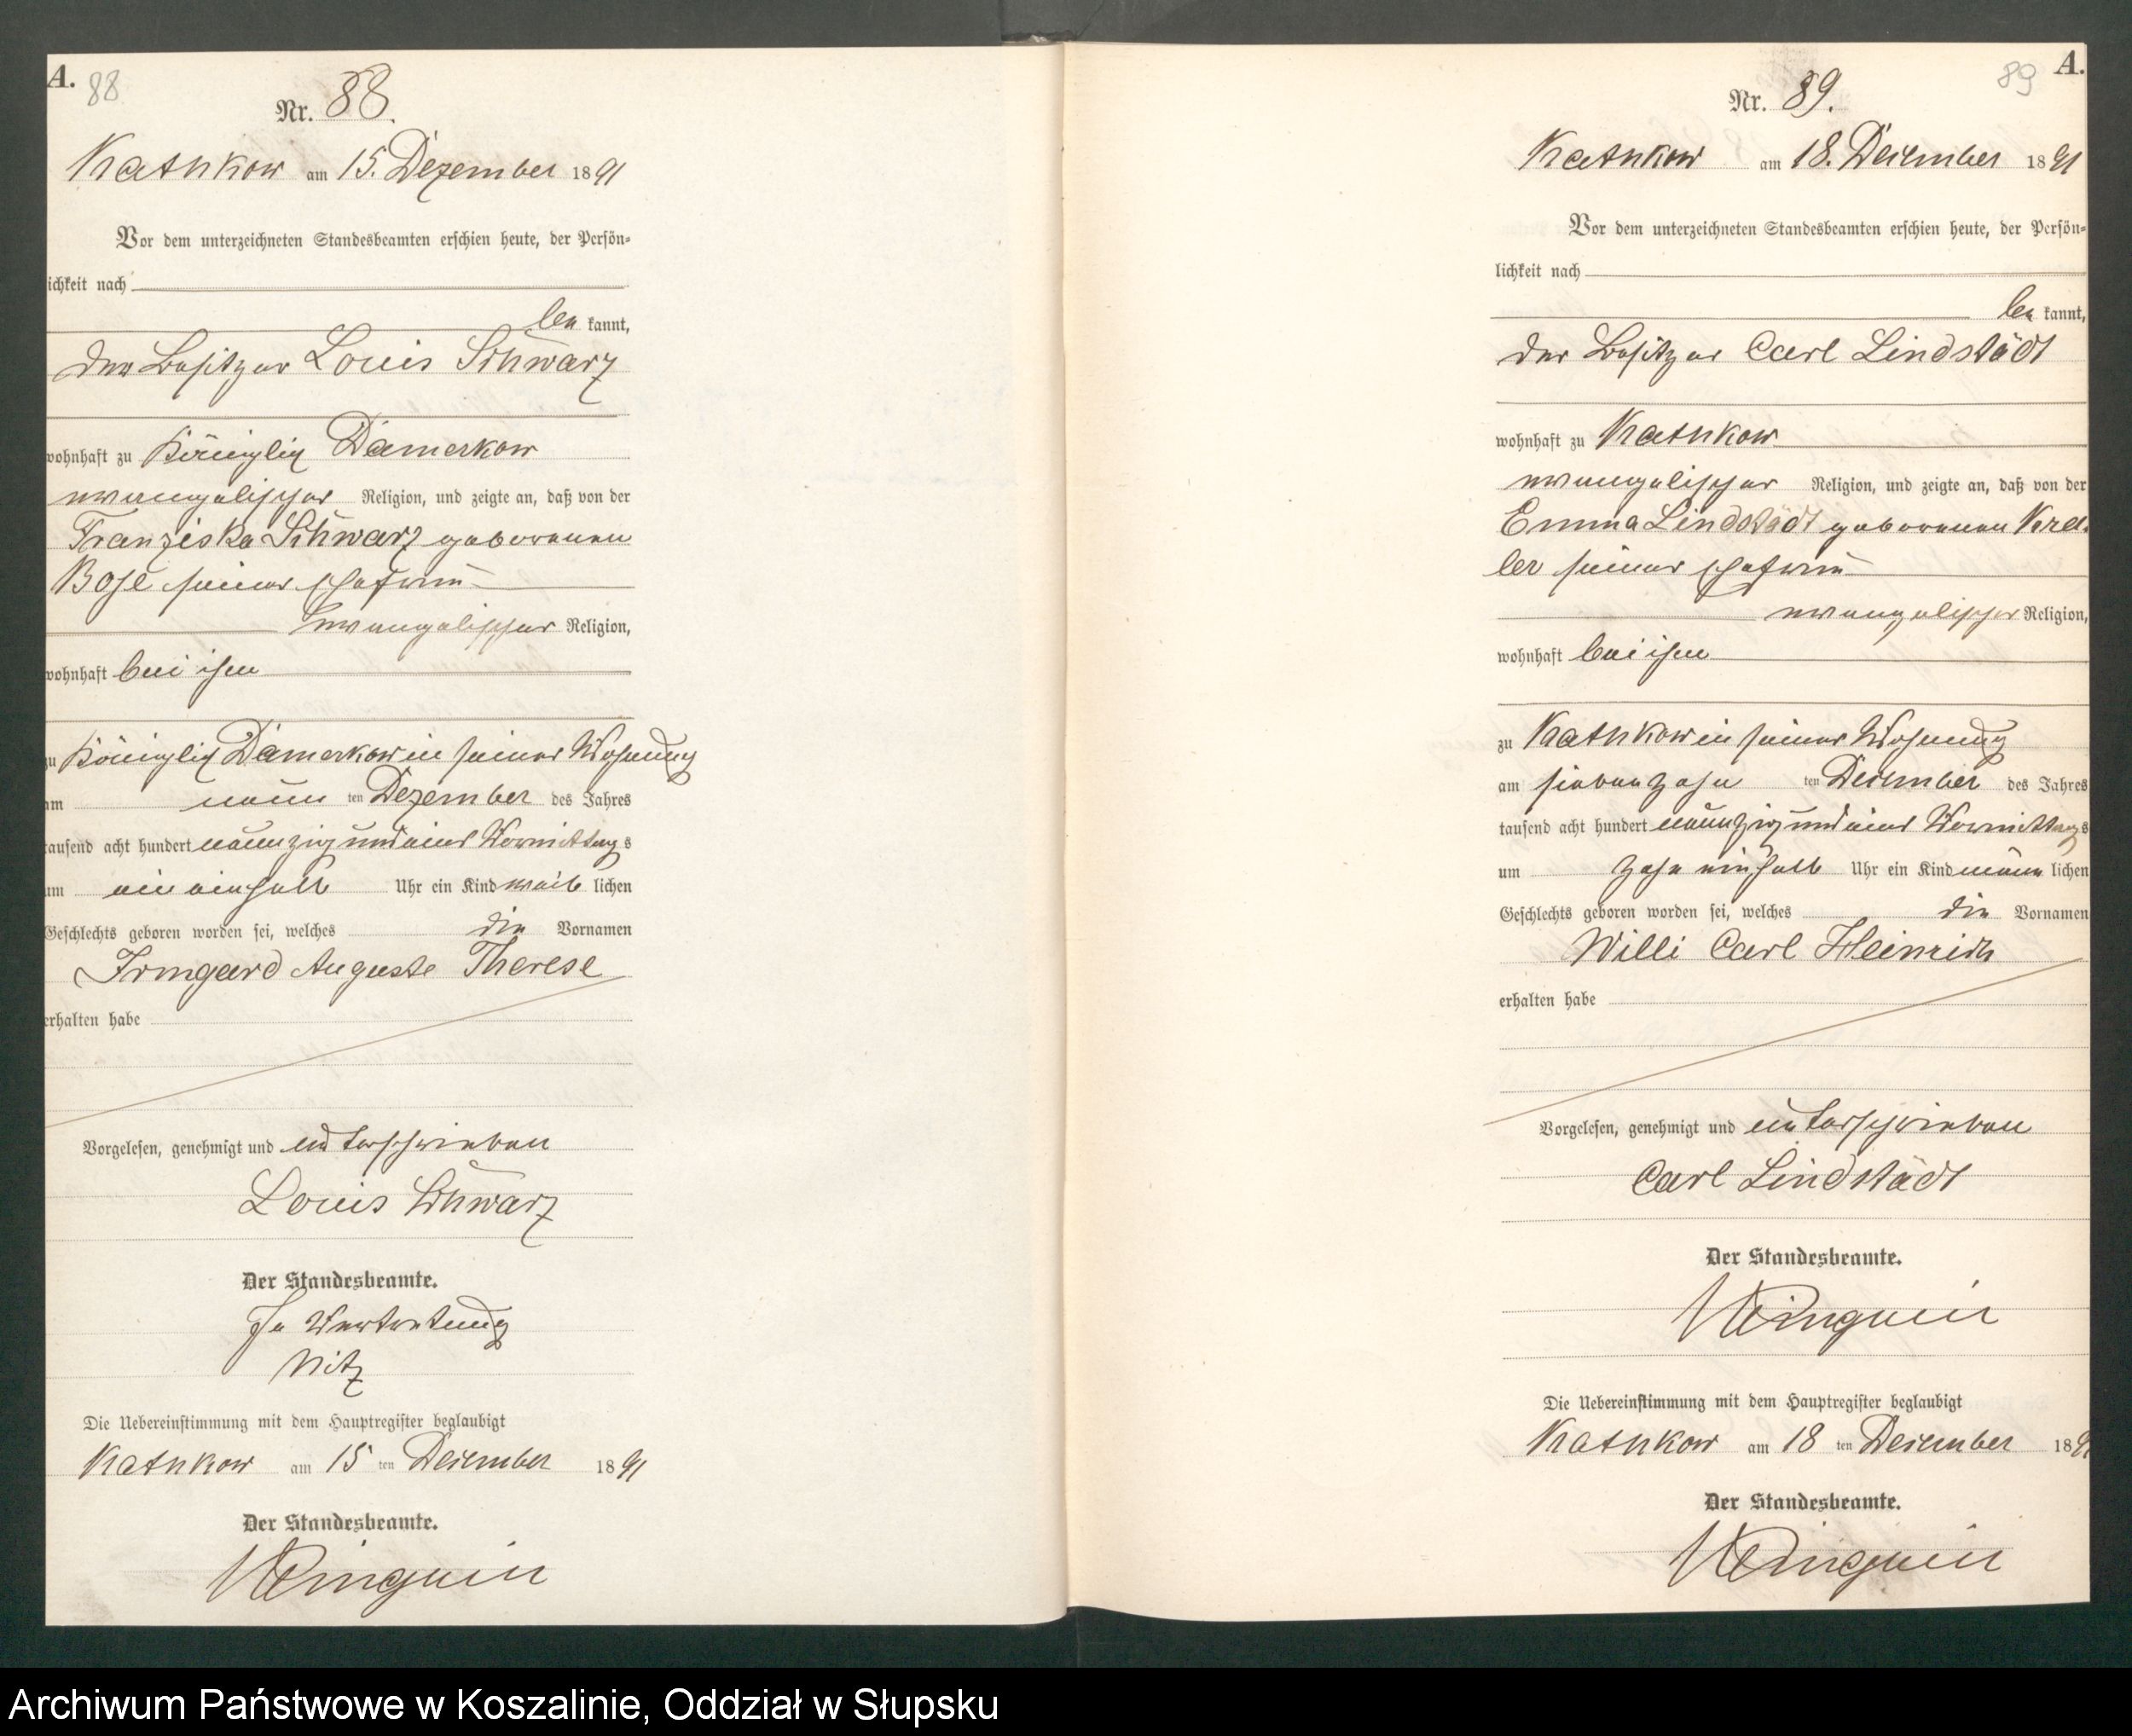 A. 88
Nr. 88.
Kathkow am 15. Dezember 1891
Vor dem unterzeichneten Standesbeamten erschien heute, der Persön-
ichkeit nach
be kannt,
der Besitzer Louis Schwarz
wohnhaft zu Königlich Damerkow
evangelischer Religion, und zeigte an, daß von der
Franziska Schwarz geborenen
Bose seiner Ehefrau
evangelischer Religion,
wohnhaft bei ihm
zu Königlich Damerkow in seiner Wohnung
am neun ten Dezember des Jahres
tausend acht hundert neunzig und eins Vormittags
um ein einhalb Uhr ein Kind weib lichen
Geschlechts geboren worden sei, welches die Vornamen
Irmgard Auguste Therese
erhalten habe
Vorgelesen, genehmigt und unterschrieben
Louis Schwarz
Der Standesbeamte.
In Vertretung
Nitz
Die Uebereinstimmung mit dem Hauptregister beglaubigt
Kathkow am 15 ten Dezember 1891
Der Standesbeamte.
89 A.
Nr. 89.
Kathkow am 18. Dezember 1891
Vor dem unterzeichneten Standesbeamten erschien heute, der Persön-
lichkeit nach
be kannt,
der Besitzer Carl Lindstädt
wohnhaft zu Kathkow
evangelischer Religion, und zeigte an, daß von der
Emma Lindstädt geborenen
seiner Ehefrau
evangelischer Religion,
wohnhaft bei ihm
zu Kathkow in seiner Wohnung
am siebenzehn ten Dezember des Jahres
tausend acht hundert neunzig und eins Vormittags
um zehn einhalb Uhr ein Kind männ lichen
Geschlechts geboren worden sei, welches die Vornamen
Willi Carl Heinrich
erhalten habe
Vorgelesen, genehmigt und unterschrieben
Carl Lindstädt
Der Standesbeamte.
Die Uebereinstimmung mit dem Hauptregister beglaubigt
Kathkow am 18 ten Dezember 1891
Der Standesbeamte.
Archiwum Państwowe w Koszalinie, Oddział w Słupsku